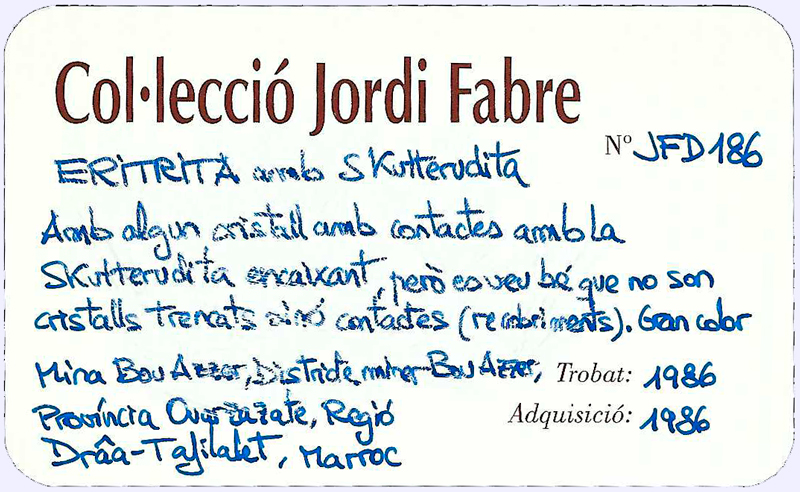 Col·lecció Jordi Fabre
Nº JFD186
ERITRITA amb Skutterudita
Amb algun cristall amb contactes amb la
Skutterudita encaixant, però es veu bé que no son
cristalls trencats sinó contactes (recobriments). Gran color
Mina Bou Azzer, Districte miner Bou Azzer, Trobat: 1986
Província Ouarzazate, Regió Adquisició: 1986
Drâa-Tafilalet, Marroc